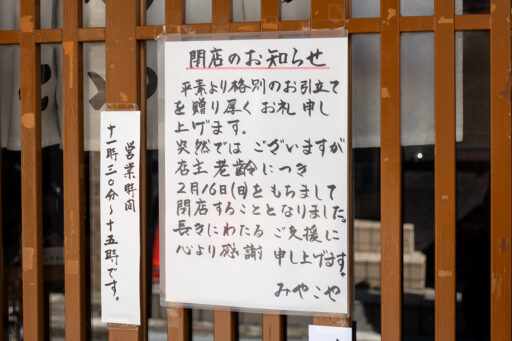 閉店のお知らせ
平素より格別のお引立て
を贈り厚くお礼申し
上げます。
突然では ございますが
店主 老齢につき
2月16日(日)をもちまして
閉店することとなりました。
長きにわたる ご支援に
心より感謝 申し上げます。
みやこや
営業時間
十一時三〇分〜十五時です。